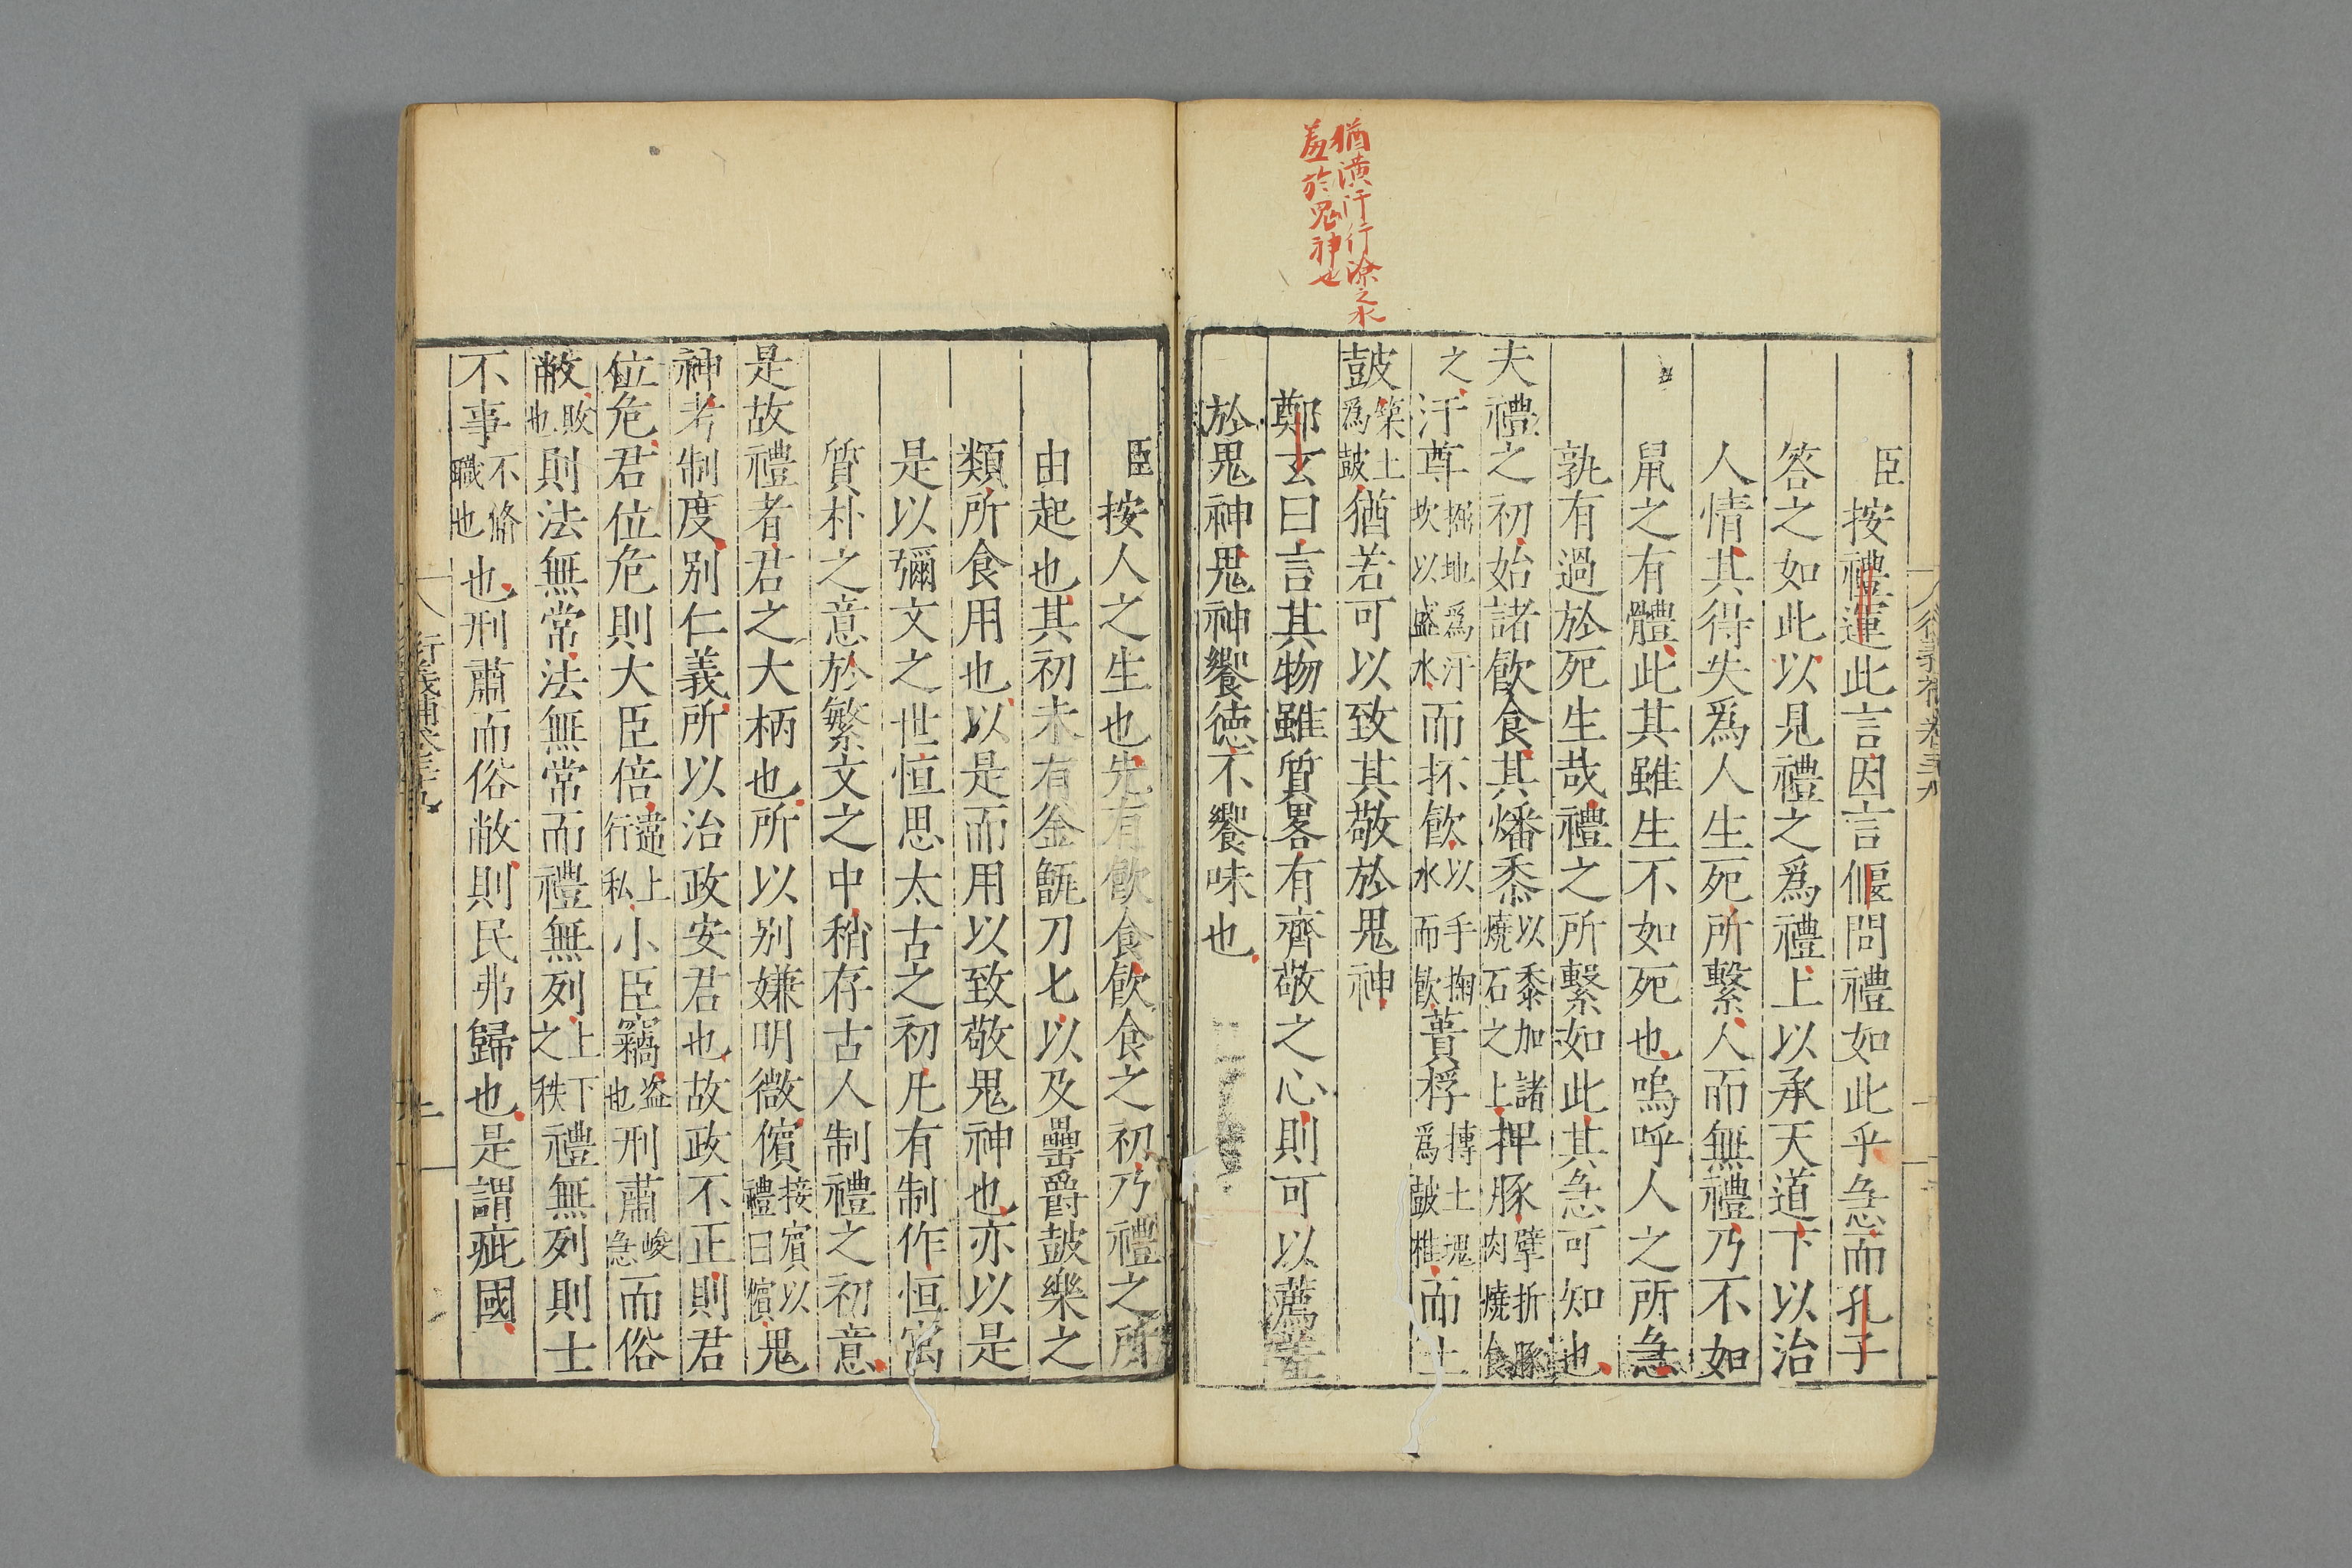 猶潢汙行潦之水
羞於鬼神也
臣按禮運此言因言偃問禮如此乎急而孔子
答之如此以見禮之爲禮上以承天道下以治
人情其得失爲人生死所繫人而無禮乃不如
鼠之有體此其雖生不如死也嗚呼人之所急
孰有過於死生哉禮之所繫如此其急可知也
夫禮之初始諸飮食其燔黍以黍加諸燒石之上押豚擘折豚肉燒食
之汙尊掘地爲汙坎以盛水而抔飮以手掬水而飮蕢桴摶土塊爲鼓椎而土
鼓築土爲鼓猶若可以致其敬於鬼神
鄭玄曰言其物雖質畧有齊敬之心則可以薦羞
於鬼神鬼神饗徳不饗味也
臣按人之生也先有飮食飮食之初乃禮之所
由起也其初未有釡甑刀匕以及罍爵鼓樂之
類所食用也以是而用以致敬鬼神也亦以是
是以彌文之世恒思太古之初凡有制作恒寓
質朴之意於繁文之中稍存古人制禮之初意
是故禮者君之大柄也所以别嫌明微儐接賔以禮曰儐鬼
神考制度别仁義所以治政安君也故政不正則君
位危君位危則大臣倍違上行私小臣竊盗也刑肅峻急而俗
敝敗也則法無常法無常而禮無列上下之秩禮無列則士
不事不脩職也也刑肅而俗敝則民弗歸也是謂疵國